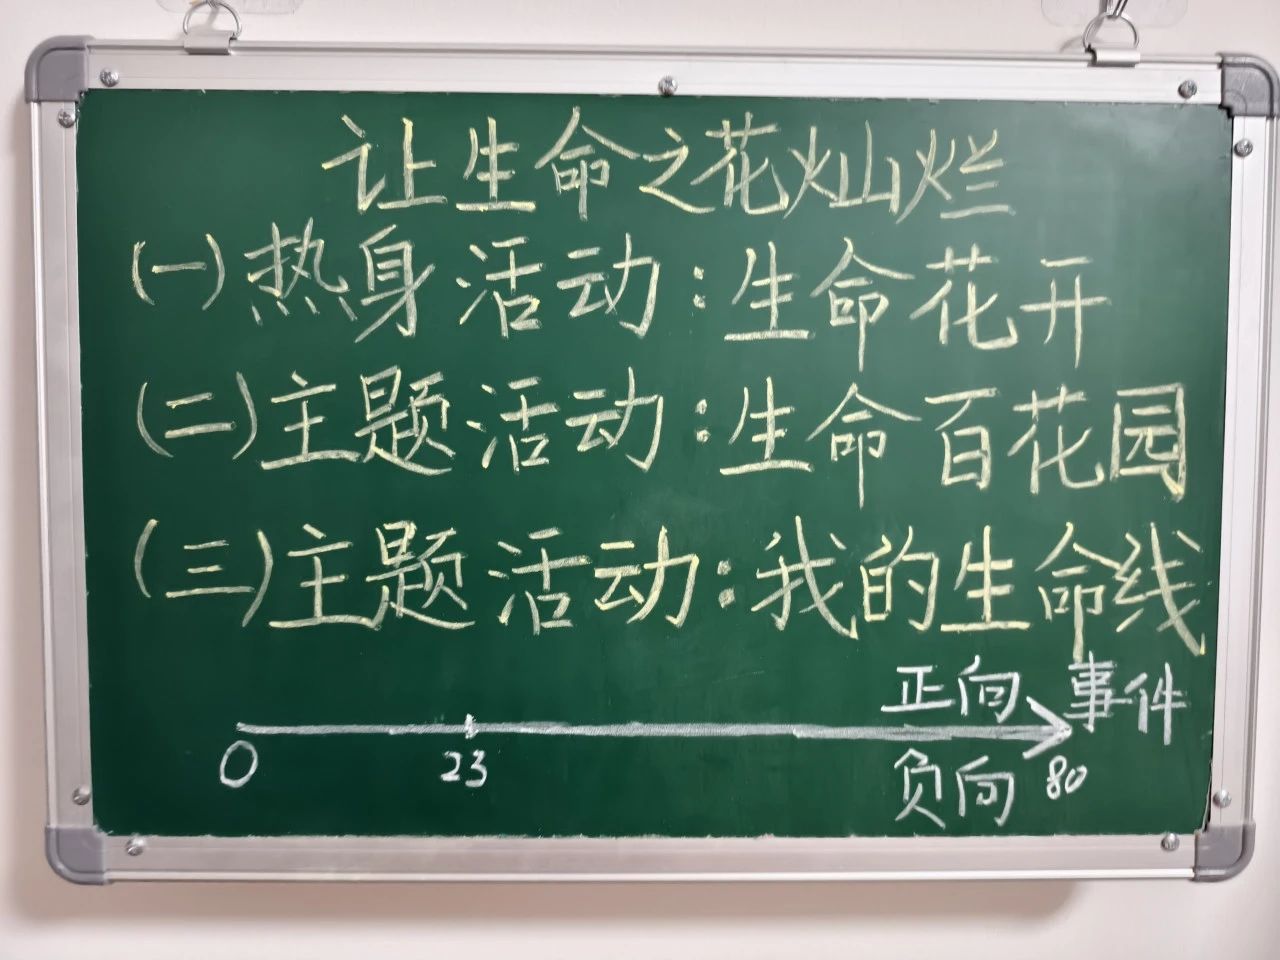 让生命之花灿烂
(一)热身活动:生命花开
(二)主题活动:生命百花园
(三)主题活动:我的生命线
正向 事件
0 23 负向 80